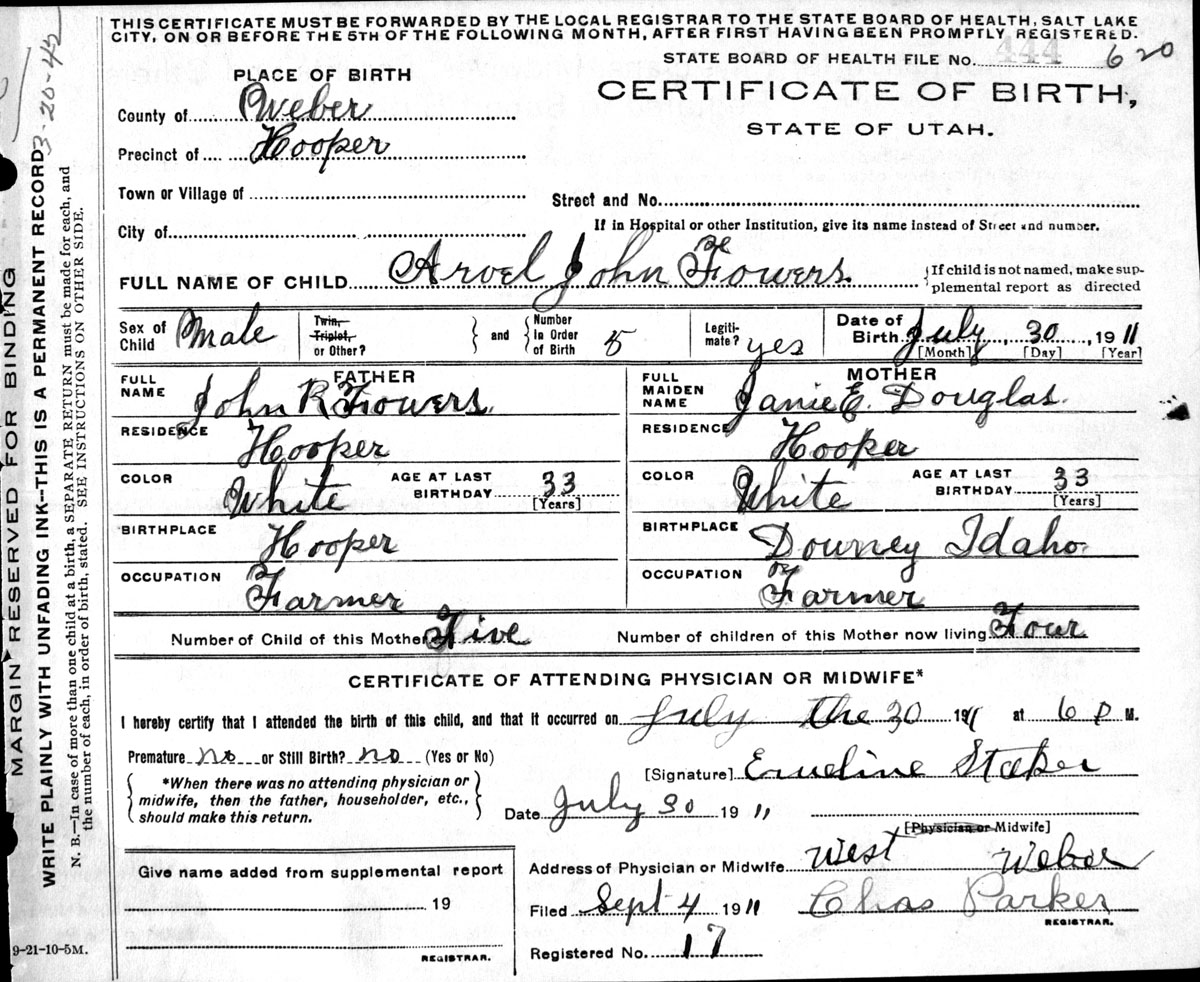 THIS CERTIFICATE MUST BE FORWARDED BY THE LOCAL REGISTRAR TO THE STATE BOARD OF HEALTH, SALT LAKE
CITY, ON OR BEFORE THE 5TH OF THE FOLLOWING MONTH, AFTER FIRST HAVING BEEN PROMPTLY REGISTERED.
STATE BOARD OF HEALTH FILE No. 444 620
PLACE OF BIRTH
CERTIFICATE OF BIRTH,
STATE OF UTAH.
County of Weber
Precinct of Hooper
Town or Village of
Street and No.
City of
If in Hospital or other Institution, give its name instead of Street and number.
FULL NAME OF CHILD Arvel John Fowers
{If child is not named, make sup-
plemental report as directed
Sex of Child Male
Twin, Triplet, or Other?
and Number In Order of Birth 5
Legiti-mate? yes
Date of Birth July 30 1911
[Month] [Day] [Year]
FATHER
FULL NAME John R Fowers
MOTHER
FULL MAIDEN NAME Janie E. Douglas
RESIDENCE Hooper
RESIDENCE Hooper
COLOR White AGE AT LAST BIRTHDAY 33 [Years]
COLOR White AGE AT LAST BIRTHDAY 33 [Years]
BIRTHPLACE Hooper
BIRTHPLACE Downey Idaho
OCCUPATION Farmer
OCCUPATION Farmer
Number of Child of this Mother Five Number of children of this Mother now living Four
CERTIFICATE OF ATTENDING PHYSICIAN OR MIDWIFE*
I hereby certify that I attended the birth of this child, and that it occurred on July the 30 1911 at 6 P M.
Premature no or Still Birth? no (Yes or No)
*When there was no attending physician or
midwife, then the father, householder, etc.,
should make this return.
[Signature] Emeline Staker
Date July 30 1911
[Physician or Midwife]
Address of Physician or Midwife West Weber
Filed Sept 4 1911 Chas Parker
REGISTRAR.
Registered No. 17
Give name added from supplemental report
19
REGISTRAR.
9-21-10-5M.
MARGIN RESERVED FOR BINDING
WRITE PLAINLY WITH UNFADING INK—THIS IS A PERMANENT RECORD
3-20-42
N. B.—In case of more than one child at a birth, a SEPARATE RETURN must be made for each, and
the number of each, in order of birth, stated. SEE INSTRUCTIONS ON OTHER SIDE.